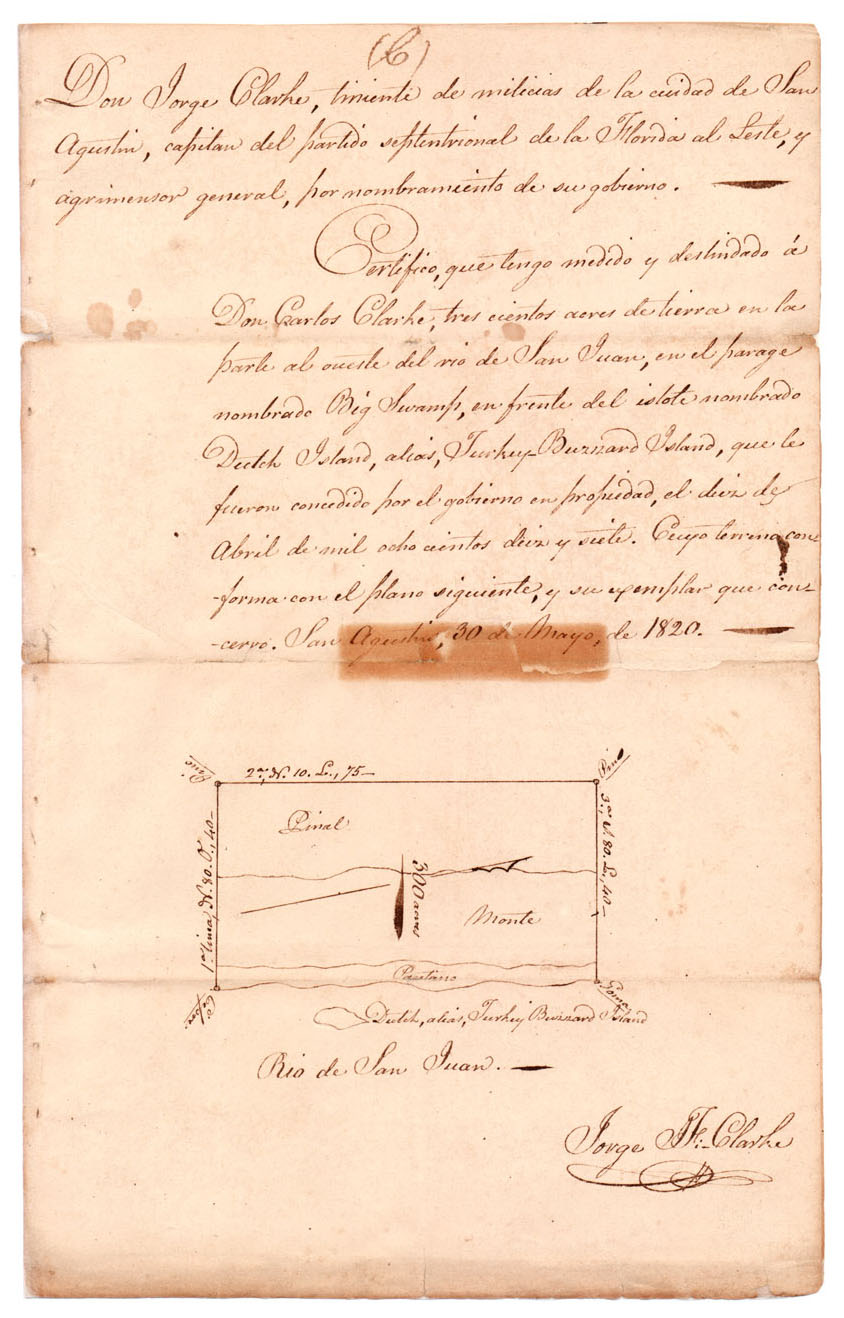 (C)
Don Jorge Clarke, tiniente de milicias de la cuidad de San
Agustin, capitan del partido septentrional de la Florida al Leste, y
agrimensor general, por nombramiento de su gobierno.
Certifico, que tengo medido y deslindado á
Don Carlos Clarke, tres cientos acres de tierra en la
parte al oueste del rio de San Juan, en el parage
nombrado Big Swamp, en frente del islote nombrado
Dutch Island, alias, Turkey-Buzzard Island, que le
fueron concedido por el gobierno en propiedad, el diez de
Abril de mil ocho cientos diez y siete. Cuyo terreno con-
-forma con el plano siguiente, y su exemplar que con-
-cervo. San Agustin, 30 de Mayo, de 1820.
Pino
2a., N. 10. L., 75
Pino
1a. linea, N. 80. O., 40
3a., S. 80. L., 40
Pinal
300 acres
Monte
Pantano
Goma
Dutch, alias, Turkey Buzzard Island
Rio de San Juan.
Jorge J. F. Clarke